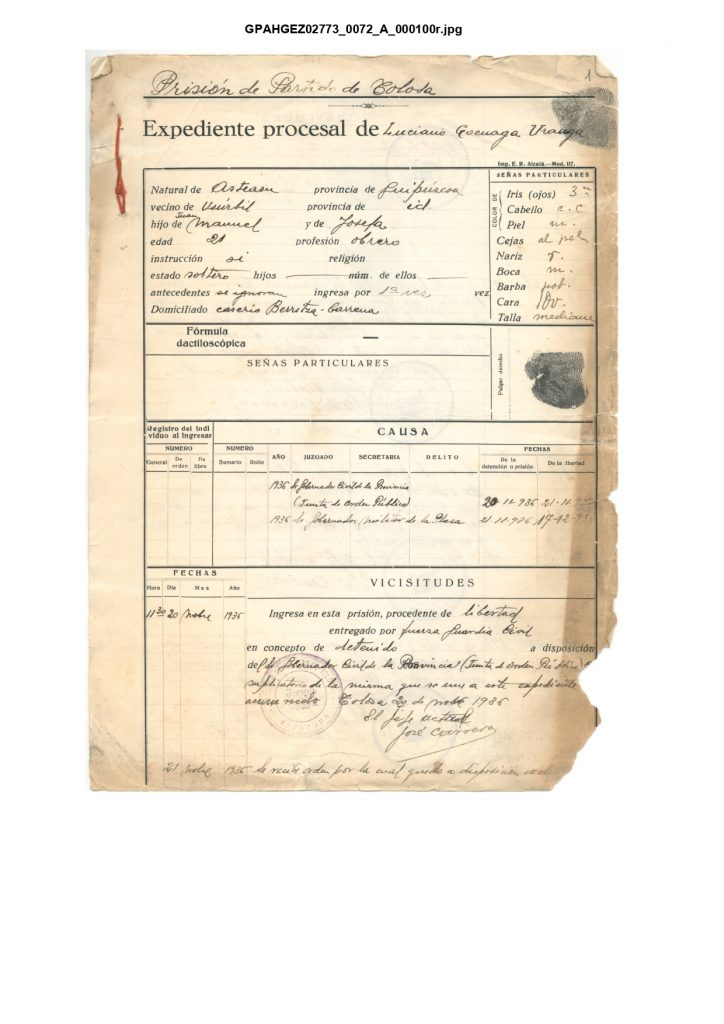 GPAHGEZ02773_0072_A_000100r.jpg
1
Prisión de Partido de Tolosa
Expediente procesal de Luciano Uranga
Imp. E. R. Alcalá.—Mod. 117.
Natural de Asteasu provincia de Guipúscoa
vecino de Usúrbil provincia de id.
hijo de Juan Manuel y de Josefa
edad 21 profesión obrero
instrucción si religión
estado soltero hijos núm. de ellos
antecedentes se ignoran ingresa por 1ª vez vez
Domiciliado caserio Berritza-Barrena
SEÑAS PARTICULARES
COLOR DE
Iris (ojos)
Cabello c.C
Piel m.
Cejas al pel
Nariz r.
Boca m.
Barba pob.
Cara
Talla mediana
Fórmula
dactiloscópica —
SEÑAS PARTICULARES
Pulgar derecho
Registro del indi
viduo al ingresar
CAUSA
NUMERO
NUMERO
FECHAS
General De orden De libro Sumario Rollo AÑO JUZGADO SECRETARIA DELITO De la detención o prisión De la libertad
1936 Gobernador Civil de la Provincia
(Junta de Orden Público) 20-11-936 21-11-9
1936 Gobernador militar de la Plaza 21-11-936 17-12-93
FECHAS
VICISITUDES
Hora Día Mes Año
11 30 20 Nobre 1936 Ingresa en esta prisión, procedente de libertad
entregado por fuerza Guardia Civil
en concepto de detenido a disposición
del Gobernador Civil de la Provincia (Junta de Orden Público)
suplicatorio de la misma que se une a este expediente
acusa recibo Tolosa 20 de nobre 1936
El Jefe actual
José Carrera
21 Nobre 1936 Se recibe orden por la cual queda a disposición